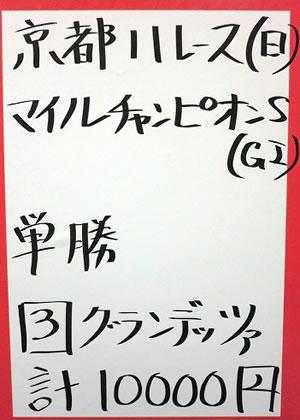 京都11レース(日)
マイルチャンピオンS
(GI)
単勝
3 グランデッツァ
計10000円